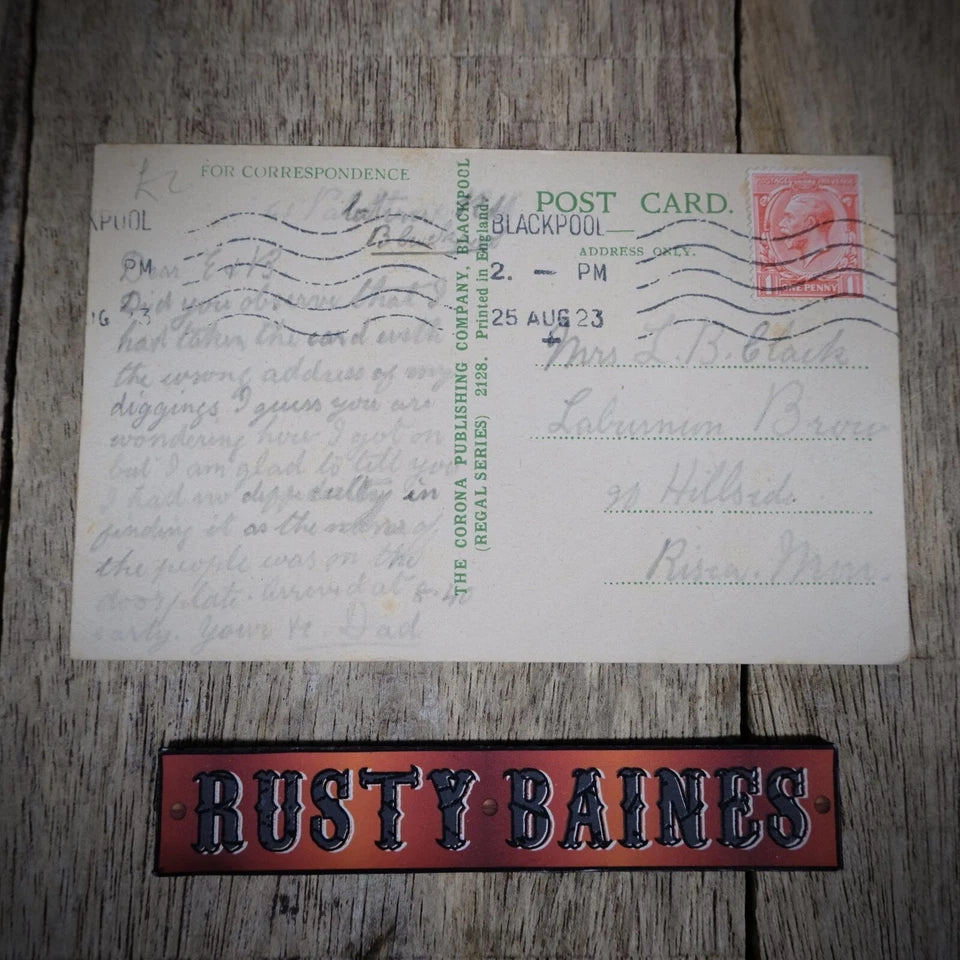 £2
FOR CORRESPONDENCE
KPOOL
PM
Dear E & B
Did you observe that I
had taken the card with
the wrong address of my
diggings I guess you are
wondering how I got on
but I am glad to tell you
I had no difficulty in
finding it as the name of
the people was on the
door plate. Arrived at
early. Yours &c. Dad
THE CORONA PUBLISHING COMPANY, BLACKPOOL
(REGAL SERIES) 2128. Printed in England.
POST CARD.
BLACKPOOL
ADDRESS ONLY.
2. — PM
25 AUG 23
POSTAGE REVENUE
ONE PENNY
1 1
Mrs L. B. Clark
Laburnum Brow
Hillside
Risca. Mon
RUSTY BAINES